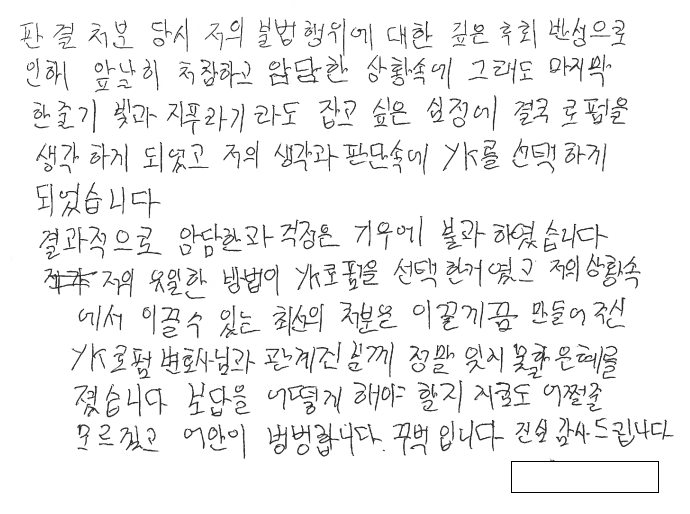 판결 처분 당시 저의 불법행위에 대한 깊은 후회 반성으로
인해 앞날이 처참하고 암담한 상황속에 그래도 마지막
한줄기 빛과 지푸라기라도 잡고 싶은 심정에 결국 로펌을
생각 하게 되었고 저의 생각과 판단속에 YK를 선택하게
되었습니다
결과적으로 암담한과 걱정은 기우에 불과 하였습니다
저의 유일한 방법이 YK로펌을 선택한거 였고 저의 상황속
에서 이끌수 있는 최선의 처분을 이끌게끔 만들어 주신
YK로펌 변호사님과 관계진분께 정말 잊지 못할 은혜를
졌습니다 보답을 어떻게 해야 할지 지금도 어쩔줄
모르겠고 어안이 벙벙합니다. 꾸벅 입니다 진심 감사드립니다